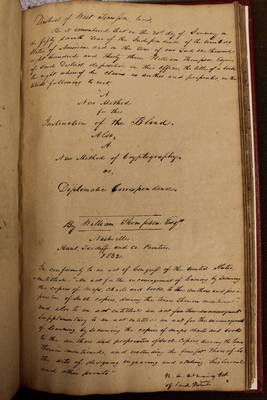 District of West Tennessee, to wit,
Be it remembered that on the day of January in
the fifty seventh Year of the Independence of the United
States of America, and in the Year of our Lord one thousand
eight hundred and thirty three William Thompson Esquire
of said District deposited in this office the title of a book
the right whereof he claims as author and proprietor in the
words following to wit:
"A
New Method
for the
Instruction of the Blind.
Also,
A
New Method of Cryptography
or,
Diplomatic Correspondence.
By William Thompson Esqr
Nashville
Hunt, Tardiff and Co Printers
1832.
In conformity to an act of Congress of the United States
entitled "an act for the encouragement of learning by securing
the copies of maps charts and books to the authors and pro-
prietors of such copies, during the times therein mentioned"
and also to an act entitled an act
supplementary to an act entitled an act for the encouragement
of learning by securing the copies of maps charts and books
to the authors and proprietors of such copies during the times
therein mentioned, and extending the benefit thereof to
the arts of designing engraving and etching historical
and other prints."
of said District